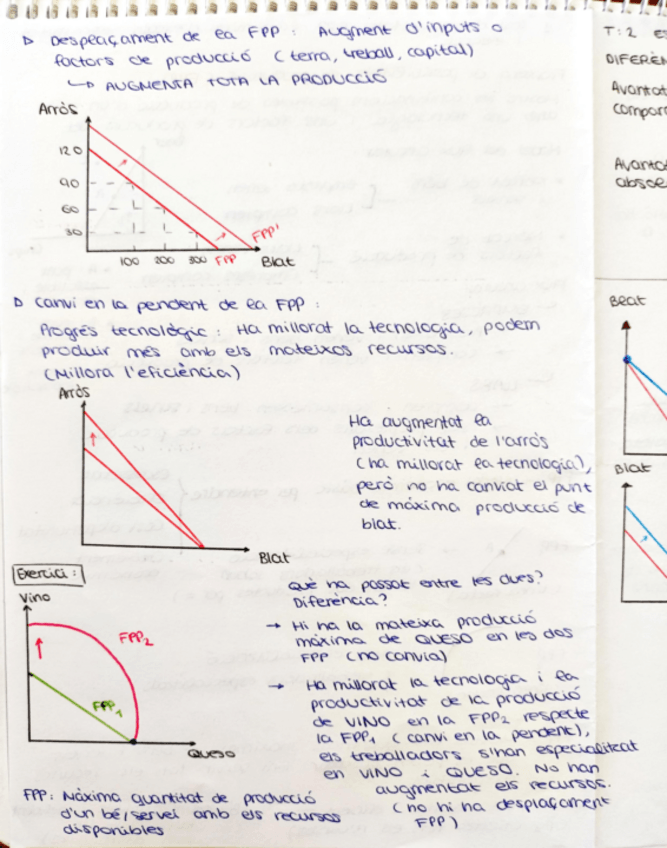 ▷ Desplaçament de la FPP : Augment d'inputs o
factors de producció (terra, treball, capital)
↳ AUGMENTA TOTA LA PRODUCCIÓ
Arròs
120
90
60
30
100 200 300 FPP
FPP'
Blat
▷ Canvi en la pendent de la FPP :
Progrés tecnològic : Ha millorat la tecnologia, podem
produir més amb els mateixos recursos.
(Millora l'eficiència)
Arròs
Blat
Ha augmentat la
productivitat de l'arròs
(ha millorat la tecnologia),
però no ha canviat el punt
de màxima producció de
blat.
Exercici :
Vino
FPP₂
FPP₁
Queso
Què ha passat entre les dues?
Diferència?
→ Hi ha la mateixa producció
màxima de QUESO en les dos
FPP (no canvia)
→ Ha millorat la tecnologia i la
productivitat de la producció
de VINO en la FPP₂ respecte
la FPP₁ (canvi en la pendent),
els treballadors s'han especialitzat
en VINO i QUESO. No han
augmentat els recursos.
(no hi ha desplaçament
FPP)
FPP: Màxima quantitat de producció
d'un bé/servei amb els recursos
disponibles
T:2
Blat
Blat